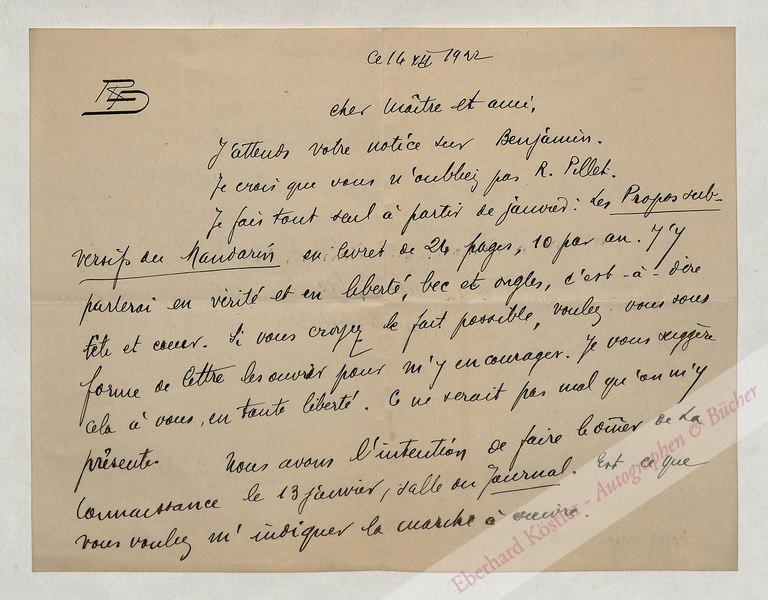 Ce 14 XII 1922
RD
cher Maître et ami,
J'attends votre notice sur Benjamin.
Je crois que vous n'oubliez pas R. Pillet.
Je fais tout seul à partir de janvier : Les Propos sub-
versifs du Mandarin en livret de 24 pages, 10 par an. J'y
parlerai en vérité et en liberté, bec et ongles, c'est-à-dire
tête et cœur. Si vous croyez le fait possible, voulez-vous sous
forme de lettre les ouvrir pour m'y encourager. Je vous suggère
cela à vous, en toute liberté. Ce ne serait pas mal qu'on m'y
présente. Nous avons l'intention de faire le dîner de La
Connaissance le 13 janvier, salle du Journal. Est-ce que
vous voulez m'indiquer la marche à suivre.
Eberhard Köstler - Autographen & Bücher